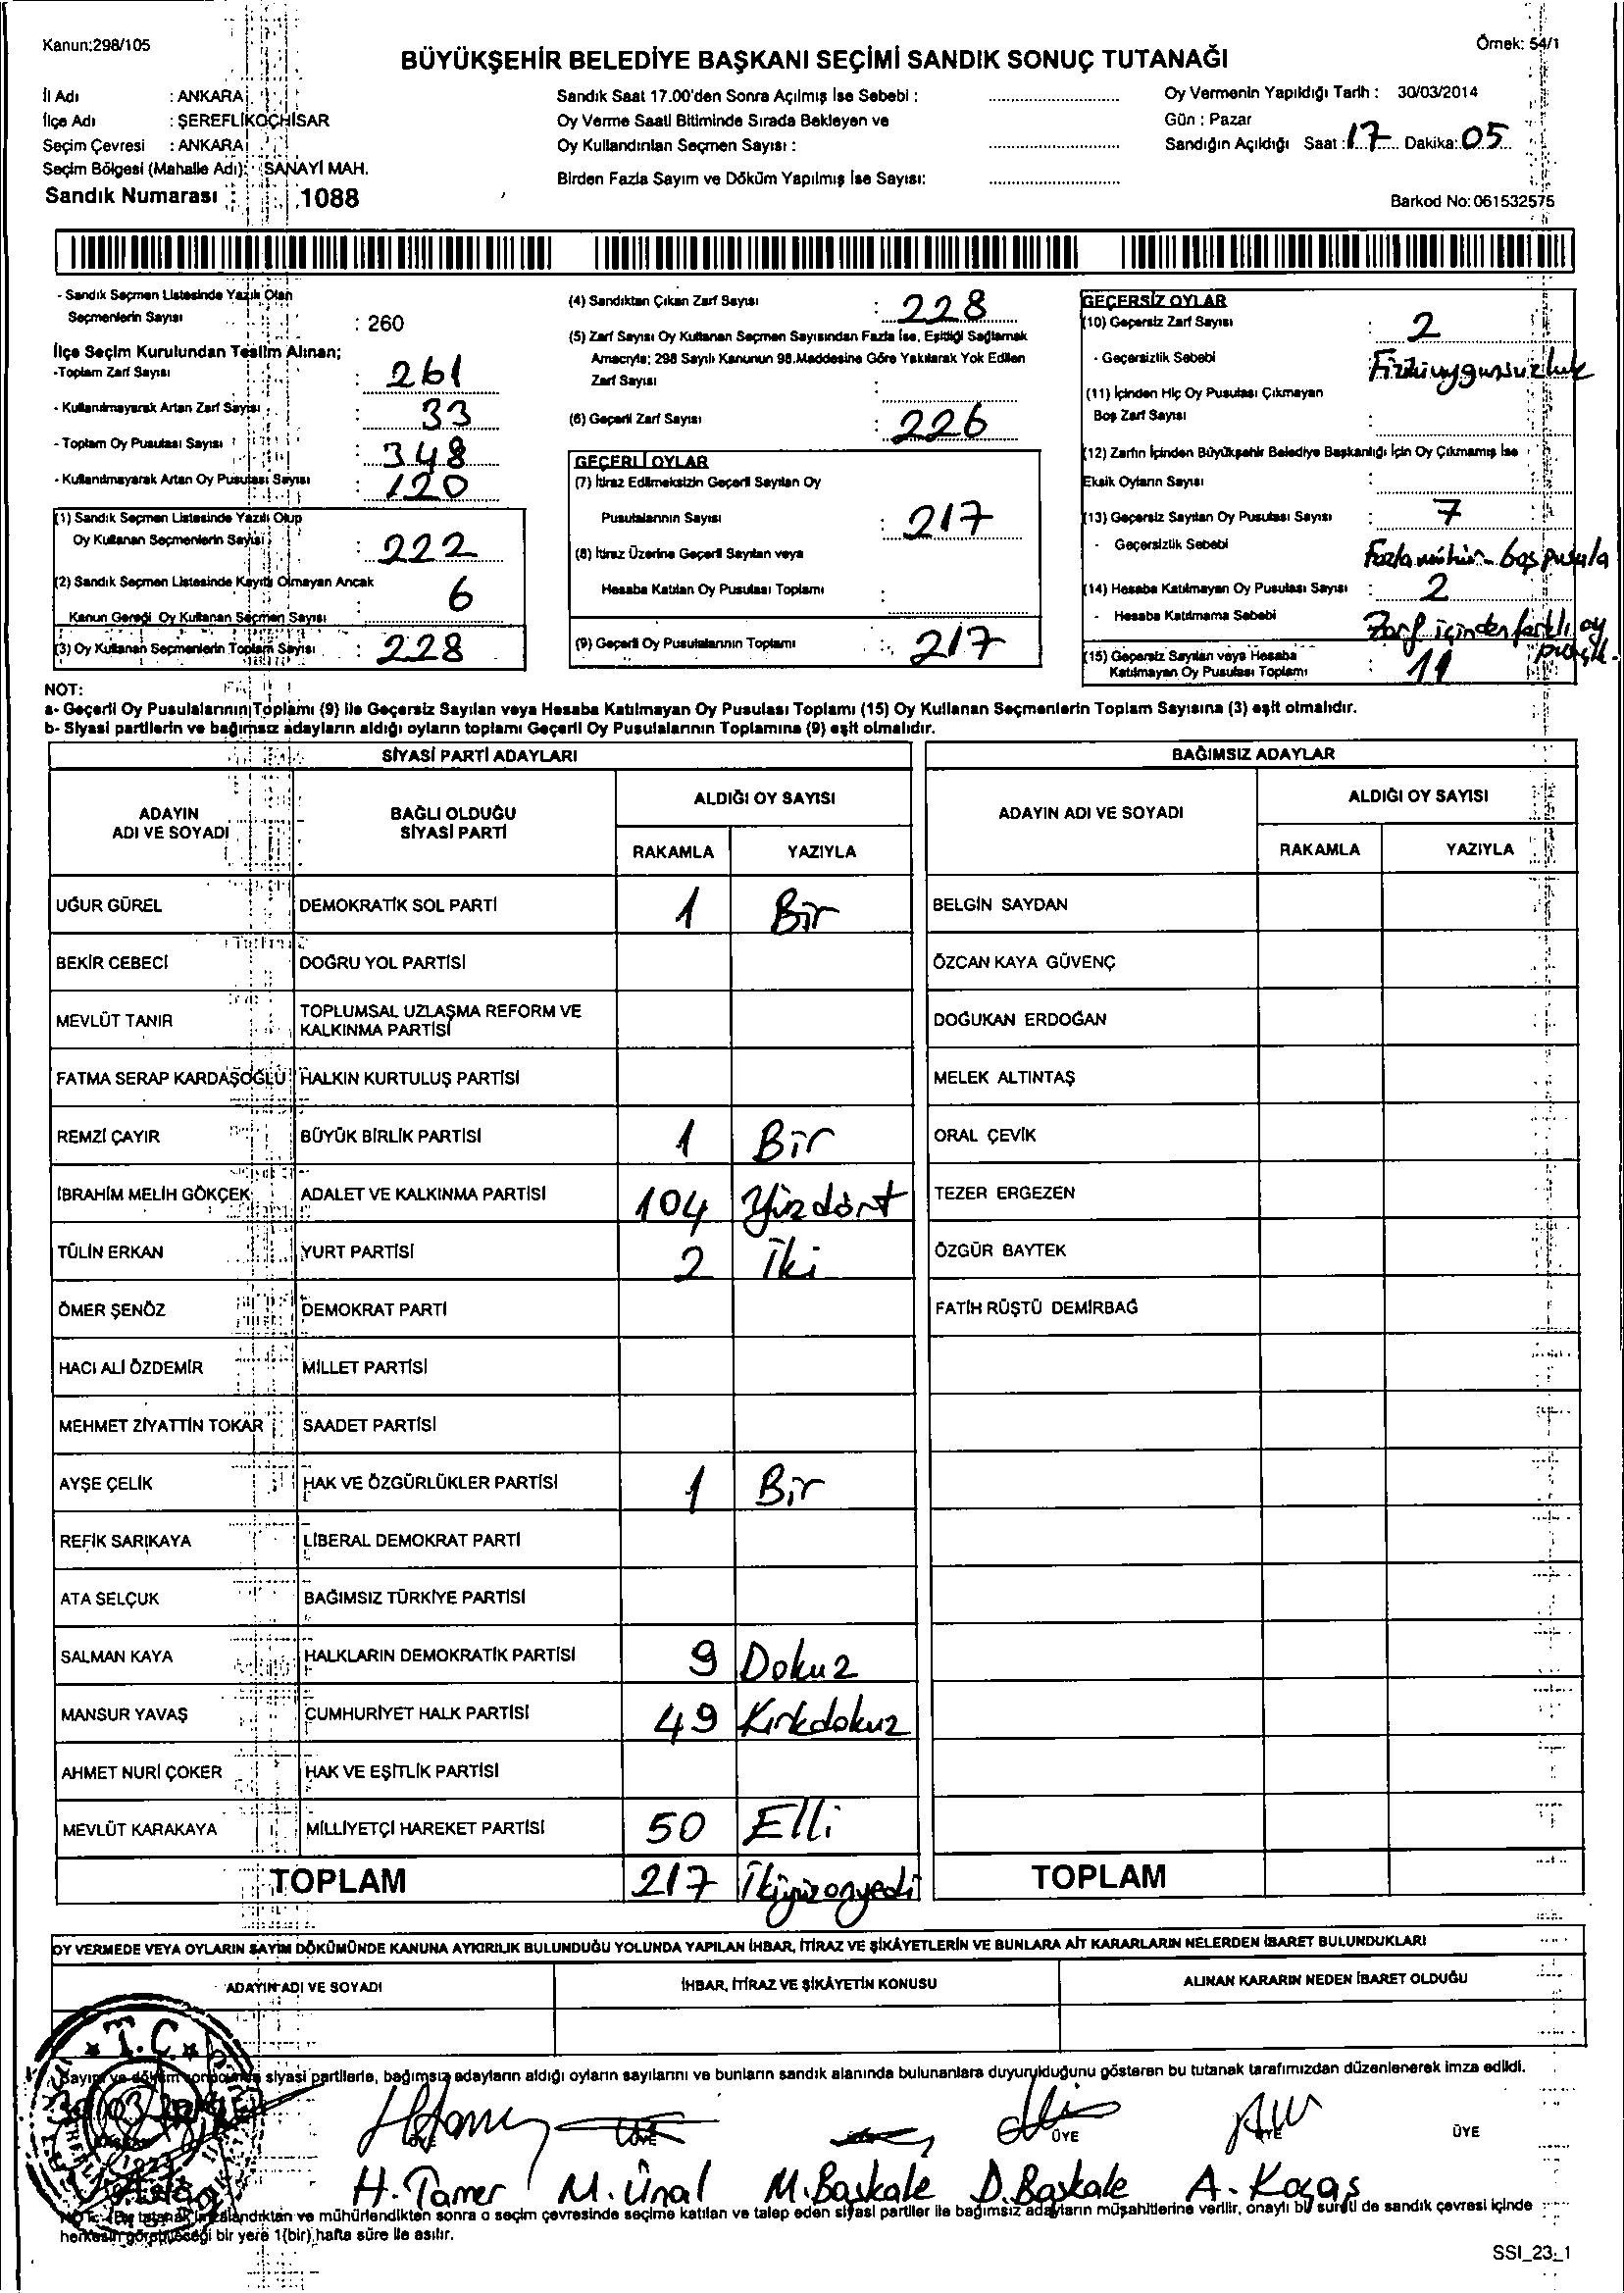 Kanun:298/105
Örnek: 54/1
BÜYÜKŞEHİR BELEDİYE BAŞKANI SEÇİMİ SANDIK SONUÇ TUTANAĞI
İl Adı : ANKARA
İlçe Adı : ŞEREFLİKOÇHİSAR
Seçim Çevresi : ANKARA
Seçim Bölgesi (Mahalle Adı): SANAYİ MAH.
Sandık Numarası : 1088
Sandık Saat 17.00'den Sonra Açılmış İse Sebebi :
Oy Verme Saati Bitiminde Sırada Bekleyen ve
Oy Kullandırılan Seçmen Sayısı :
Birden Fazla Sayım ve Döküm Yapılmış İse Sayısı:
Oy Vermenin Yapıldığı Tarih : 30/03/2014
Gün : Pazar
Sandığın Açıldığı Saat : 17 Dakika: 05
Barkod No: 061532575
- Sandık Seçmen Listesinde Yazılı Olan
Seçmenlerin Sayısı : 260
İlçe Seçim Kurulundan Teslim Alınan;
-Toplam Zarf Sayısı : 261
- Kullanılmayarak Artan Zarf Sayısı : 33
- Toplam Oy Pusulası Sayısı : 348
- Kullanılmayarak Artan Oy Pusulası Sayısı : 120
(1) Sandık Seçmen Listesinde Yazılı Olup
Oy Kullanan Seçmenlerin Sayısı : 222
(2) Sandık Seçmen Listesinde Kayıtlı Olmayan Ancak
Kanun Gereği Oy Kullanan Seçmen Sayısı : 6
(3) Oy Kullanan Seçmenlerin Toplam Sayısı : 228
(4) Sandıktan Çıkan Zarf Sayısı : 228
(5) Zarf Sayısı Oy Kullanan Seçmen Sayısından Fazla İse, Eşitliği Sağlamak
Amacıyla; 298 Sayılı Kanunun 98.Maddesine Göre Yakılarak Yok Edilen
Zarf Sayısı :
(6) Geçerli Zarf Sayısı : 226
GEÇERLİ OYLAR
(7) İtiraz Edilmeksizin Geçerli Sayılan Oy
Pusulalarının Sayısı : 217
(8) İtiraz Üzerine Geçerli Sayılan veya
Hesaba Katılan Oy Pusulası Toplamı :
(9) Geçerli Oy Pusulalarının Toplamı : 217
GEÇERSİZ OYLAR
(10) Geçersiz Zarf Sayısı : 2
- Geçersizlik Sebebi : Fiziki uygunsuzluk
(11) İçinden Hiç Oy Pusulası Çıkmayan
Boş Zarf Sayısı :
(12) Zarfın İçinden Büyükşehir Belediye Başkanlığı İçin Oy Çıkmamış İse
Eksik Oyların Sayısı :
(13) Geçersiz Sayılan Oy Pusulası Sayısı : 7
- Geçersizlik Sebebi Fazla mühür - boş pusula
(14) Hesaba Katılmayan Oy Pusulası Sayısı : 2
- Hesaba Katılmama Sebebi Zarf içinden farklı oy
(15) Geçersiz Sayılan veya Hesaba
Katılmayan Oy Pusulası Toplamı : 11
NOT:
a- Geçerli Oy Pusulalarının Toplamı (9) ile Geçersiz Sayılan veya Hesaba Katılmayan Oy Pusulası Toplamı (15) Oy Kullanan Seçmenlerin Toplam Sayısına (3) eşit olmalıdır.
b- Siyasi partilerin ve bağımsız adayların aldığı oyların toplamı Geçerli Oy Pusulalarının Toplamına (9) eşit olmalıdır.
SİYASİ PARTİ ADAYLARI
ADAYIN ADI VE SOYADI
BAĞLI OLDUĞU SİYASİ PARTİ
ALDIĞI OY SAYISI
RAKAMLA YAZIYLA
UĞUR GÜREL DEMOKRATİK SOL PARTİ 1 Bir
BEKİR CEBECİ DOĞRU YOL PARTİSİ
MEVLÜT TANIR TOPLUMSAL UZLAŞMA REFORM VE
KALKINMA PARTİSİ
FATMA SERAP KARDAŞOĞLU HALKIN KURTULUŞ PARTİSİ
REMZİ ÇAYIR BÜYÜK BİRLİK PARTİSİ 1 Bir
İBRAHİM MELİH GÖKÇEK ADALET VE KALKINMA PARTİSİ 104 Yüzdört
TÜLİN ERKAN YURT PARTİSİ 2 İki
ÖMER ŞENÖZ DEMOKRAT PARTİ
HACI ALİ ÖZDEMİR MİLLET PARTİSİ
MEHMET ZİYATTİN TOKAR SAADET PARTİSİ
AYŞE ÇELİK HAK VE ÖZGÜRLÜKLER PARTİSİ 1 Bir
REFİK SARIKAYA LİBERAL DEMOKRAT PARTİ
ATA SELÇUK BAĞIMSIZ TÜRKİYE PARTİSİ
SALMAN KAYA HALKLARIN DEMOKRATİK PARTİSİ 9 Dokuz
MANSUR YAVAŞ CUMHURİYET HALK PARTİSİ 49 Kırkdokuz
AHMET NURİ ÇOKER HAK VE EŞİTLİK PARTİSİ
MEVLÜT KARAKAYA MİLLİYETÇİ HAREKET PARTİSİ 50 Elli
TOPLAM 217 İkiyüzonyedi
BAĞIMSIZ ADAYLAR
ADAYIN ADI VE SOYADI
ALDIĞI OY SAYISI
RAKAMLA YAZIYLA
BELGİN SAYDAN
ÖZCAN KAYA GÜVENÇ
DOĞUKAN ERDOĞAN
MELEK ALTINTAŞ
ORAL ÇEVİK
TEZER ERGEZEN
ÖZGÜR BAYTEK
FATİH RÜŞTÜ DEMİRBAĞ
TOPLAM
OY VERMEDE VEYA OYLARIN SAYIM DÖKÜMÜNDE KANUNA AYKIRILIK BULUNDUĞU YOLUNDA YAPILAN İHBAR, İTİRAZ VE ŞİKÂYETLERİN VE BUNLARA AİT KARARLARIN NELERDEN İBARET BULUNDUKLARI
ADAYIN ADI VE SOYADI
İHBAR, İTİRAZ VE ŞİKÂYETİN KONUSU
ALINAN KARARIN NEDEN İBARET OLDUĞU
T.C.
Sayım ve döküm sonucunda siyasi partilerle, bağımsız adayların aldığı oyların sayılarını ve bunların sandık alanında bulunanlara duyurulduğunu gösteren bu tutanak tarafımızdan düzenlenerek imza edildi.
ÜYE ÜYE ÜYE ÜYE ÜYE
H. Tamer M. Ünal M. Başkale D. Başkale A. Koçaş
NOT: (Bu tutanak imzalandıktan ve mühürlendikten sonra o seçim çevresinde seçime katılan ve talep eden siyasi partiler ile bağımsız adayların müşahitlerine verilir, onaylı bir sureti de sandık çevresi içinde
herkesin görebileceği bir yere 1(bir) hafta süre ile asılır.
SSI_23_1